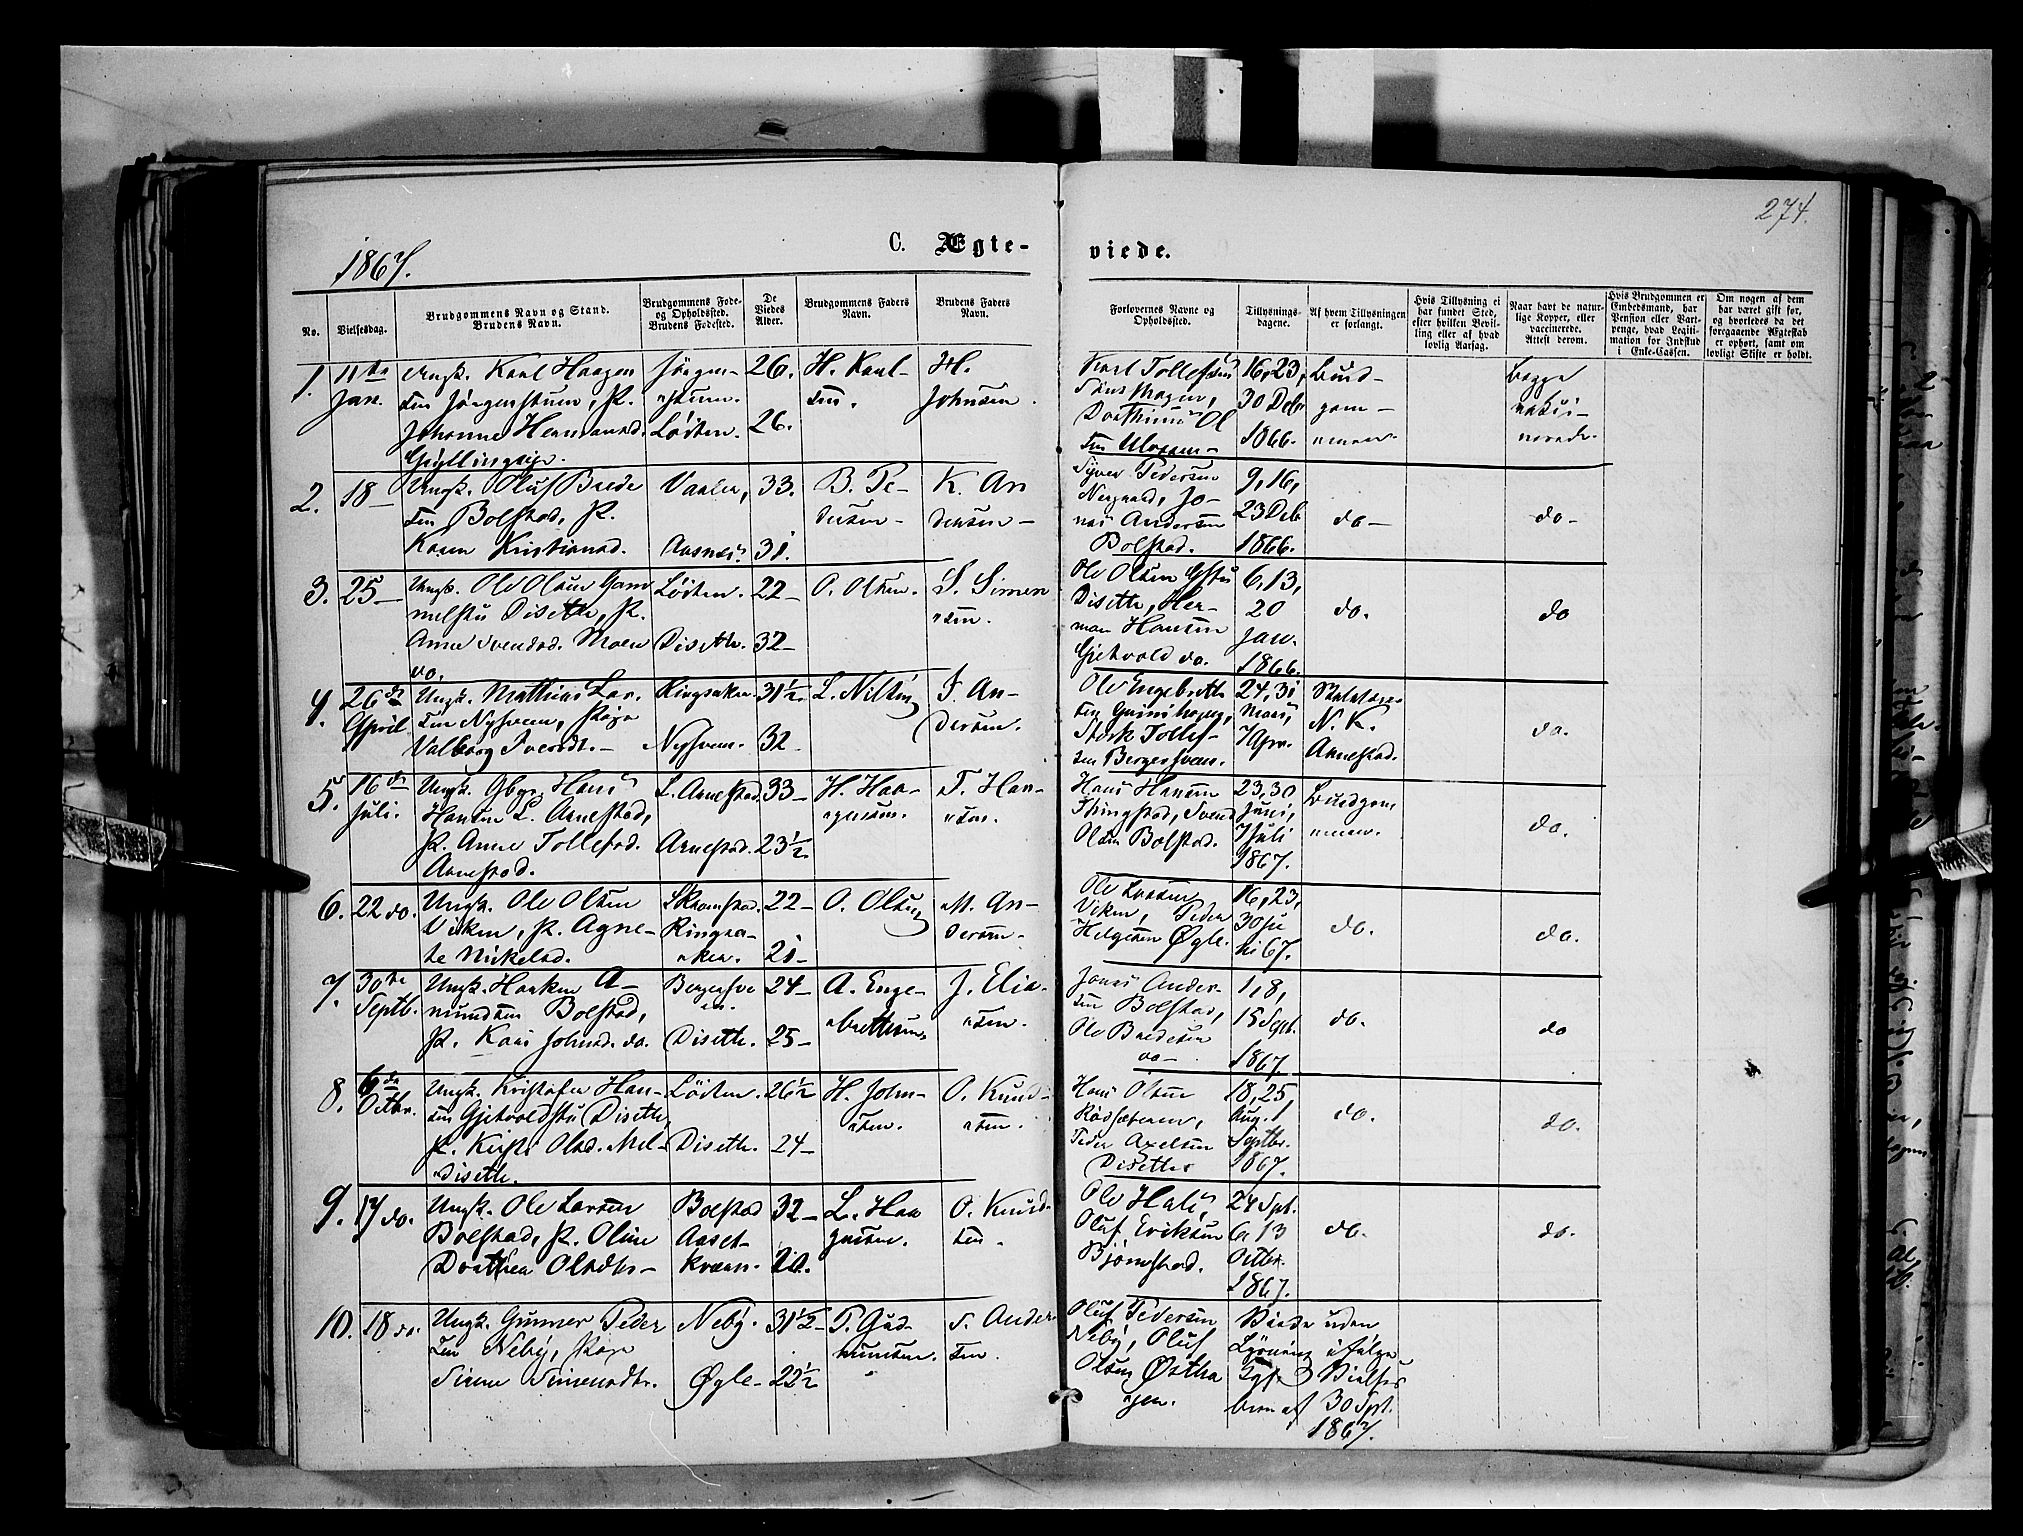 274.
1867.
C. Ægte-
viede.
No.
Vielsesdag.
Brudgommens Navn og Stand.
Brudens Navn.
Brudgommens Føde-
og Opholdssted.
Brudens Fødested.
De
Viedes
Alder.
Brudgommens Faders
Navn.
Brudens Faders
Navn.
Forlovernes Navne og
Opholdssted.
Tillysnings-
dagene.
Af hvem Tillysningen
er forlangt.
Hvis Tillysning ei
har fundet Sted,
efter hvilken Bevil-
ling eller af hvad
lovlig Aarsag.
Naar havt de natur-
lige Kopper, eller
vaccinerede.
Attest derom.
Hvis Brudgommen er
Embedsmand, har
Pension eller Vart-
penge, hvad Legiti-
mation for Indskud
i Enke-Cassen.
Om nogen af dem
har været gift før,
og hvorledes da det
foregaaende Ægteskab
er ophørt, samt om
lovligt Skifte er holdt.
1. 11te Jan.
Ungk. Karl Haagen
sen Jørgenstuen, P.
Johanne Hermansd.
Løiten.
26.
26.
H. Karl-
sen.
H.
Johnsen.
Karl Tollefsen
16, 23,
30 Debr
1866.
Brud-
gom-
men.
Begge
vacci-
nerede.
2. 18
Ungk. Oluf Brede
sen Bolstad, P.
Karen Kristiansd.
Vaaler,
Aasnes.
33.
31.
B. Pe-
dersen
K. An
dersen
Syver Pedersen
Nergaard, Jo-
nas Andersen
Bolstad.
9, 16,
23 Deb
1866.
do
do
3. 25
Ungk. Ole Olsen Gam
melstu Diseth, P.
Anne Svendsd. Moen
do.
Løiten.
Diseth.
22
32
O. Olsen.
S. Simen
sen.
Ole Olsen
Diseth, Her-
man Hansen
Gjetvold do.
6, 13,
20
Jan.
1866.
do.
do
4. 26de April
Ungk. Mathias Lar
sen Nysveen, Pige
Valborg Svendsdt.
Ringsaker
Nysveen.
31½
32
L. Nilsen
S. An-
dersen.
Ole Engebreth
sen
Tollef-
sen Bergersveen.
24, 31
Mars,
7 Apr.
N. K.
Arnestad.
do.
5. 16de Juli.
Ungk. Gbr. Hans
Hansen L. Arnestad,
P. Anne Tollefsd.
Arnestad.
L. Arnestad
Arnestad
33
23½
H. Haa-
gensen.
T. Han-
sen.
Hans Hansen
Thingstad, Svend
Olsen Bolstad.
23, 30
Juni,
7 Juli
1867.
Brudgom
men.
do.
6. 22 do.
Ungk. Ole Olsen
Viken, P. Agne-
te Mikelsd.
Skramstad.
Ringsa-
ker.
22
21
O. Olsen
M. An-
dersen
Ole Larsen
Viken, Peder
Helgesen Øgle.
16, 23,
30 Ju
ni 67.
do.
do.
7. 30te Septb.
Ungk. Haaken A-
mundsen Bolstad,
P. Kari Johnsd. do.
Bergersve
en.
Diseth.
24
25
A. Enge-
brethsen
J. Elia-
sen.
Jonas Ander-
sen Bolstad,
Ole Bredesen
do
1, 8,
15 Sept.
1867.
do.
do
8. 6de Octbr.
Ungk. Kristofer Han-
sen Gjetvoldstu Diseth,
P. Kirsti Olsd. Mel-
diseth.
Løiten
Diseth.
26½
24
H. John-
sen.
O. Knud-
sen.
Hans Olsen
Peder Axelsen
Diseth
18, 25,
Aug. 1
Septbr.
1867.
do.
do.
9. 17 do.
Ungk. Ole Larsen
Bolstad, P. Oline
Dorthea Olsdtr
Bolstad
Aaset-
kværn.
32
20.
L. Haa
gensen.
O. Knud-
sen
Ole Hals,
Oluf Eriksen
Bjørnstad.
24 Spt.
6, 13
Octbr.
1867.
do.
do.
10. 18 do.
Ungk. Gunner Peder
sen Neby, Pige
Sirene Simensdtr.
Neby.
Øgle
31½
22½
P. Gud-
mundsen.
S. Ander
sen.
Oluf Pedersen
Neby, Oluf
Olsen Østha
gen.
Viede uden
Lysning i følge
af 30 Spt.
1867.